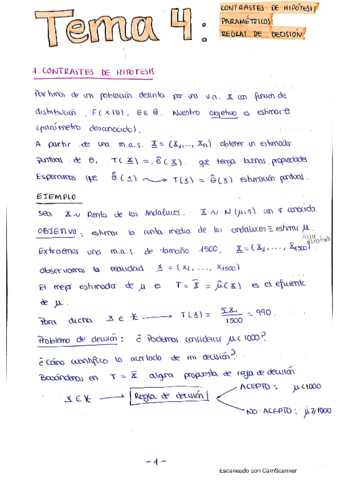 Tema 4:
CONTRASTES DE HIPÓTESIS
PARAMÉTRICOS:
REGLAS DE DECISIÓN
1. CONTRASTES DE HIPÓTESIS
Partimos de una población descrita por una v.a. X con función de
distribución, F(x|θ), θ∈Θ. Nuestro objetivo es estimar θ
(parámetro desconocido).
A partir de una m.a.s. X = (X₁, ..., Xn) obtener un estimador
puntual de θ, T(X) = θ̂(X) que tenga buenas propiedades
Esperamos que θ̂(X) → T(x) = θ̂(x) estimación puntual.
EJEMPLO
Sea X ~ Renta de los Andaluces. X ~ N(μ,σ) con σ conocida.
OBJETIVO: estimar la renta media de los andaluces ≡ estimar μ.
Extraemos una m.a.s. de tamaño 1500, X = (X₁, ..., X₁₅₀₀)
observamos la realidad x = (x₁, ..., x₁₅₀₀)
El mejor estimador de μ es T = X̄ = μ̂(X) es el eficiente
de μ.
Para dicha x ∈ χ → T(x) = Σxᵢ/1500 = 990.
Problema de decisión: ¿Podemos considerar μ<1000?
¿Cómo cuantifico lo acertado de mi decisión?
Basándonos en T = X̄ alguna propuesta de regla de decisión
x ∈ χ → Regla de decisión
ACEPTO: μ<1000
NO ACEPTO: μ≥1000
-1-
Escaneado con CamScanner